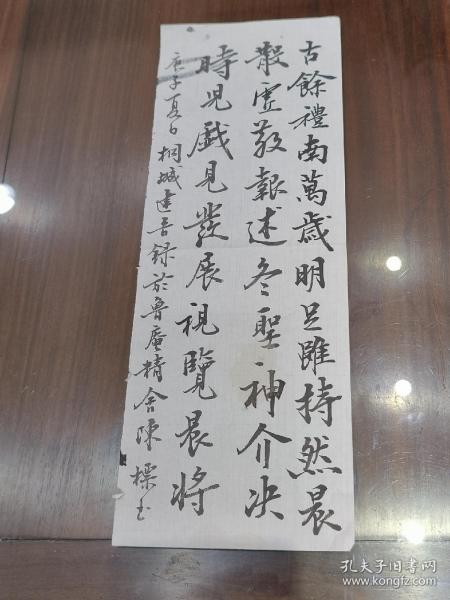 古餘禮南萬歲明足雖持然晨
散虛敬報述冬聖神介決
時見戲見發展視覽晨將
庚子夏日桐城達吾録於魯庵精舍陳標玉
孔夫子旧书网
www.kongfz.com